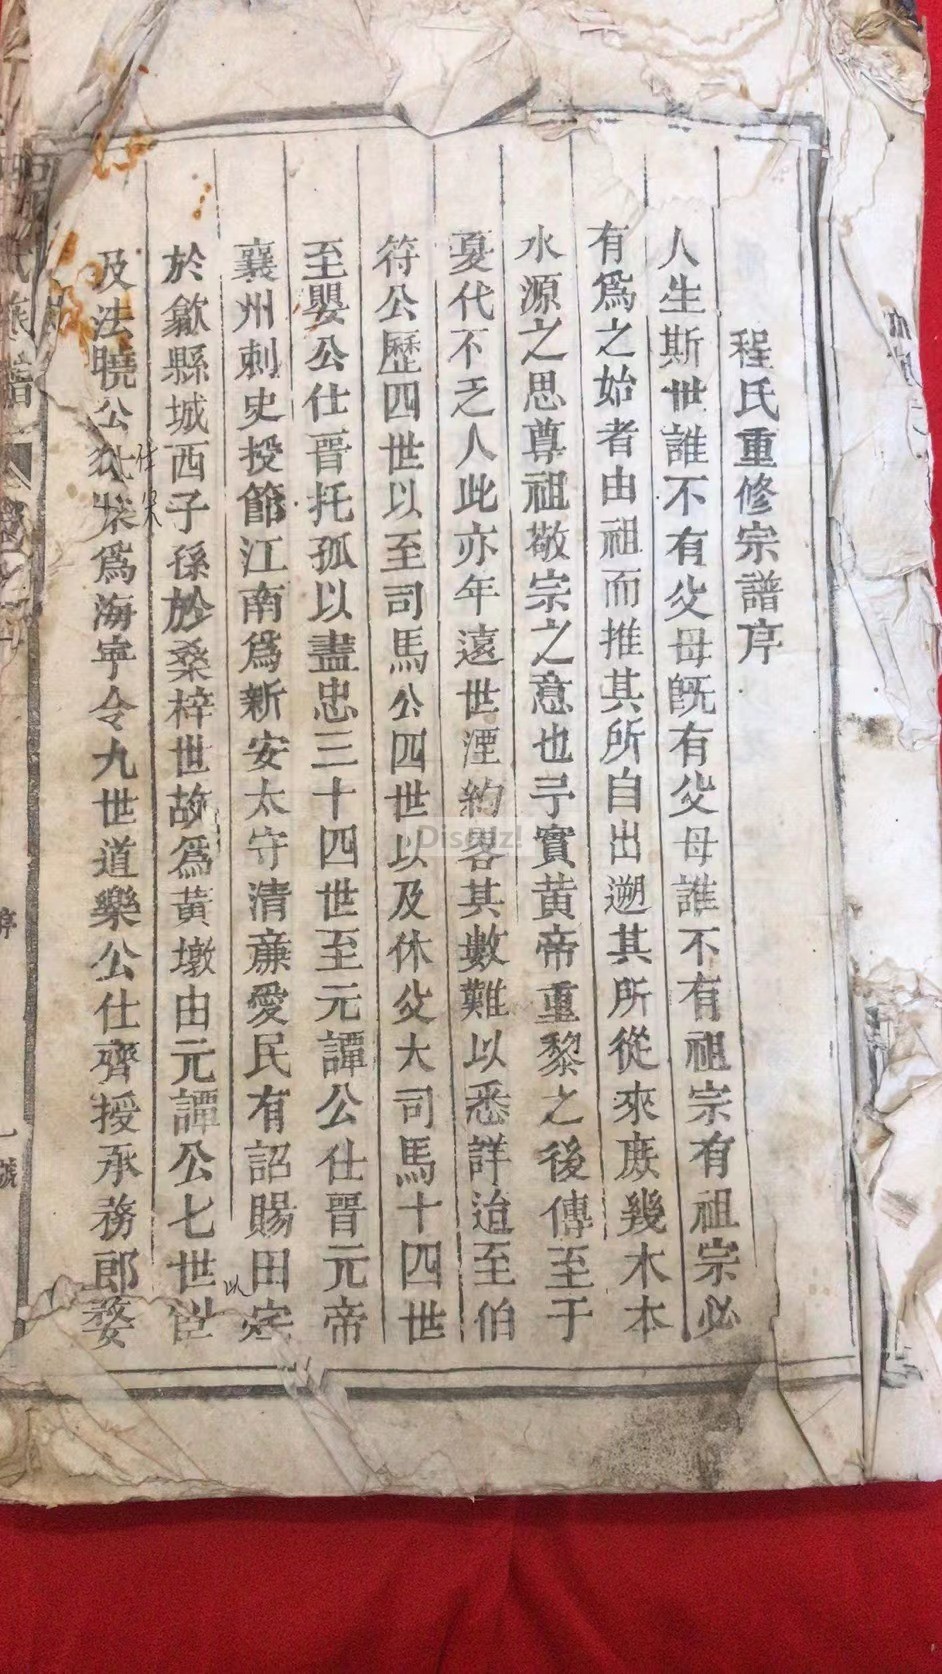 程氏重修宗譜序
人生斯世誰不有父母既有父母誰不有祖宗有祖宗必
有爲之始者由祖而推其所自出遡其所從來庶幾木本
水源之思尊祖敬宗之意也予實黄帝重黎之後傳至于
憂代不乏人此亦年遠世湮約畧其數難以悉詳迨至伯
符公歷四世以至司馬公四世以及休父大司馬十四世
至嬰公仕晋托孤以盡忠三十四世至元譚公仕晋元帝
襄州刺史授節江南爲新安太守清亷愛民有詔賜田宅
於歙縣城西子孫於桑梓世故爲黄墩由元譚公七世
及法曉公 爲海寧令九世道樂公仕齊授承務郎婺
以
序
號
Discuz!